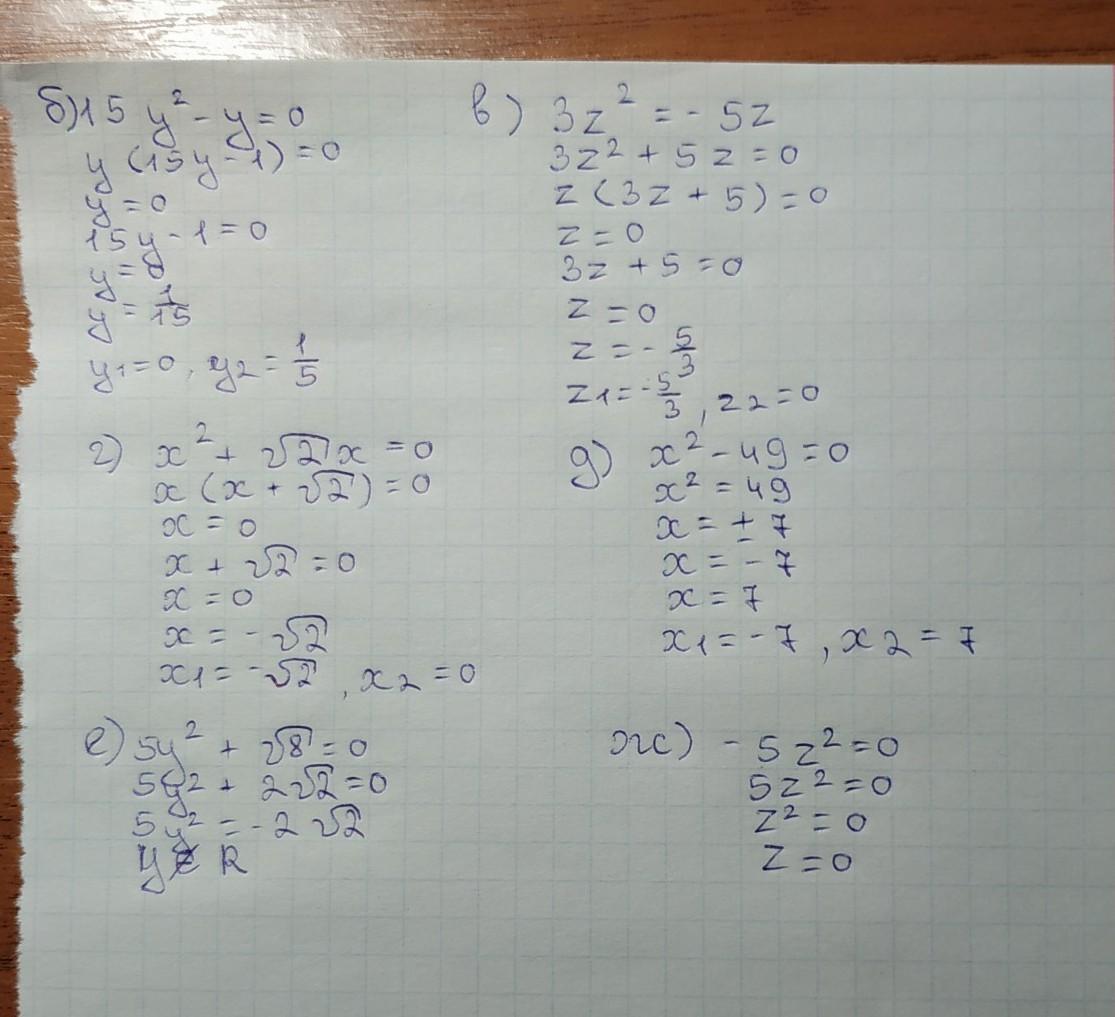 б) 15 y² - y = 0
y (15y - 1) = 0
y = 0
15y - 1 = 0
y = 0
y = 1/15
y1 = 0, y2 = 1/5
в) 3z² = - 5z
3z² + 5z = 0
z (3z + 5) = 0
z = 0
3z + 5 = 0
z = 0
z = - 5/3
z1 = - 5/3, z2 = 0
г) x² + √2 x = 0
x (x + √2) = 0
x = 0
x + √2 = 0
x = 0
x = - √2
x1 = - √2, x2 = 0
д) x² - 49 = 0
x² = 49
x = ± 7
x = - 7
x = 7
x1 = - 7, x2 = 7
е) 5y² + √8 = 0
5y² + 2√2 = 0
5y² = - 2√2
y ∉ R
ж) - 5z² = 0
5z² = 0
z² = 0
z = 0